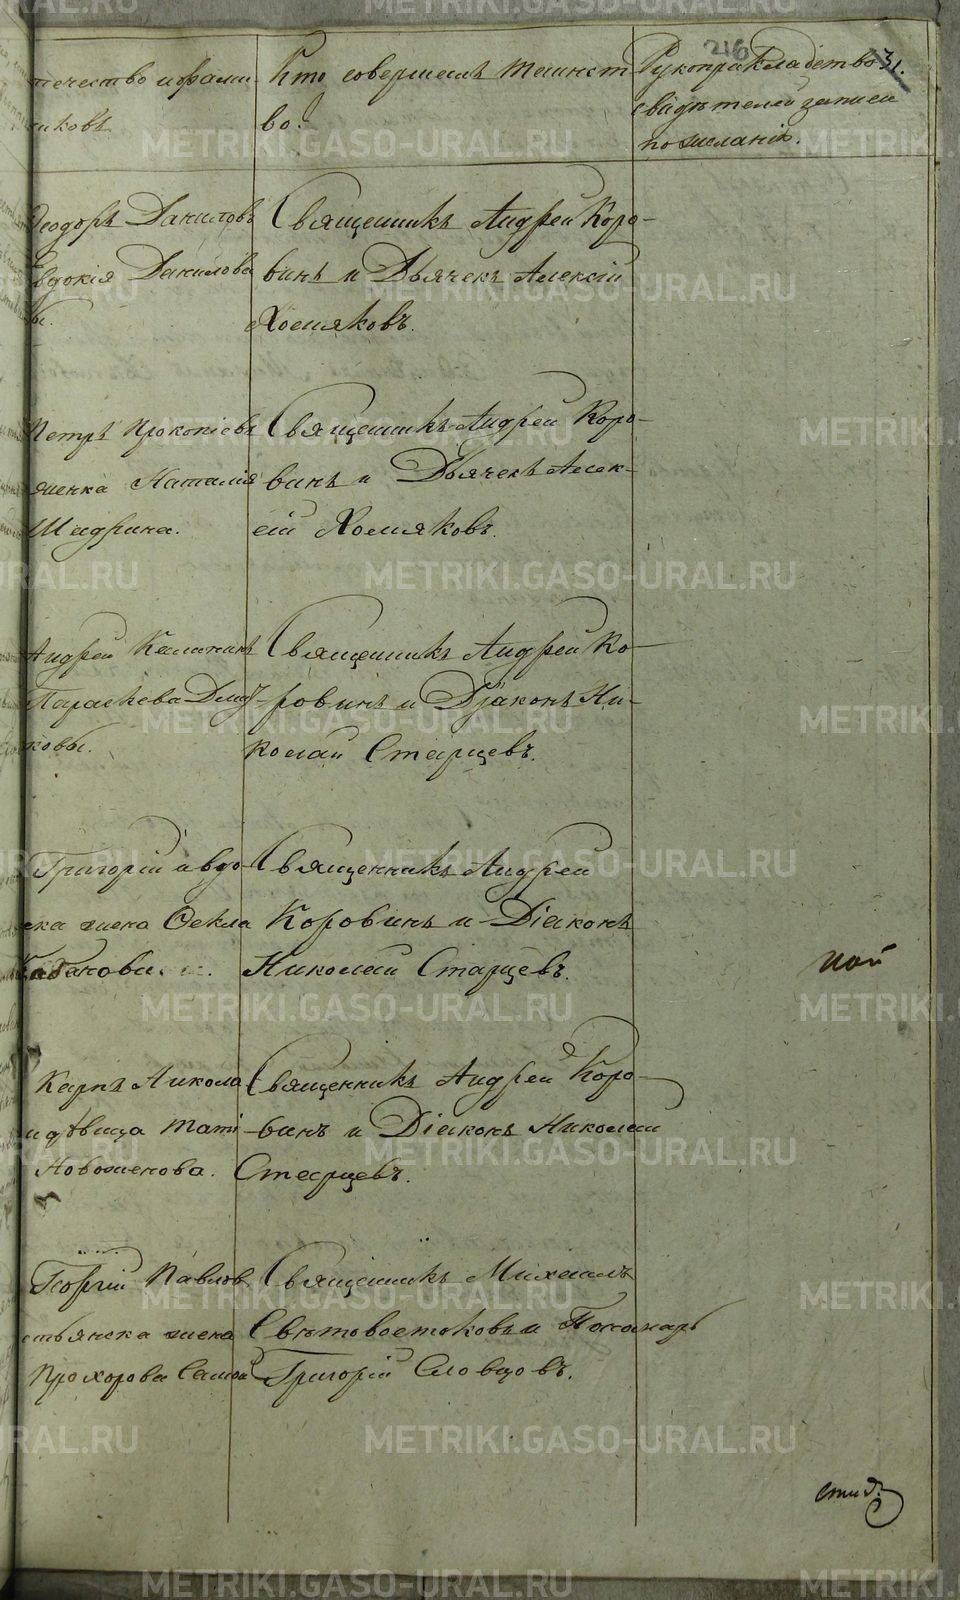 216
31.
течество и фами-
никовъ
Кто совершалъ таинст
во.
Рукоприкладство
свидѣтелей записи
по желанію.
Ѳеодоръ Даниловъ
Евдокія Данилова
вы.
Священникъ Андрей Коро-
винъ и Дьячекъ Алексій
Хомяковъ.
Петръ Прокопіевъ
женка Наталія
Шадрина.
Священникъ Андрей Коро-
винъ и Дьячекъ Алек-
сій Хомяковъ.
Андрей Калининъ
Параскева Дми
ковы.
Священникъ Андрей Ко-
ровинъ и Діаконъ Ни-
колай Старцевъ.
Григорій Авдо-
ска жена Ѳекла
Кабановы.
Священникъ Андрей
Коровинъ и Діаконъ
Николай Старцевъ.
ной
Карпъ Никола
и дѣвица Мат
Новоженова.
Священникъ Андрей Коро-
винъ и Діаконъ Николай
Старцевъ.
Георгій Павлов
стьянска жена
Прохорова Самой
Священникъ Михаилъ
Свѣтовостоковъ и Пономарь
Григорій Словцовъ.
METRIKI.GASO-URAL.RU